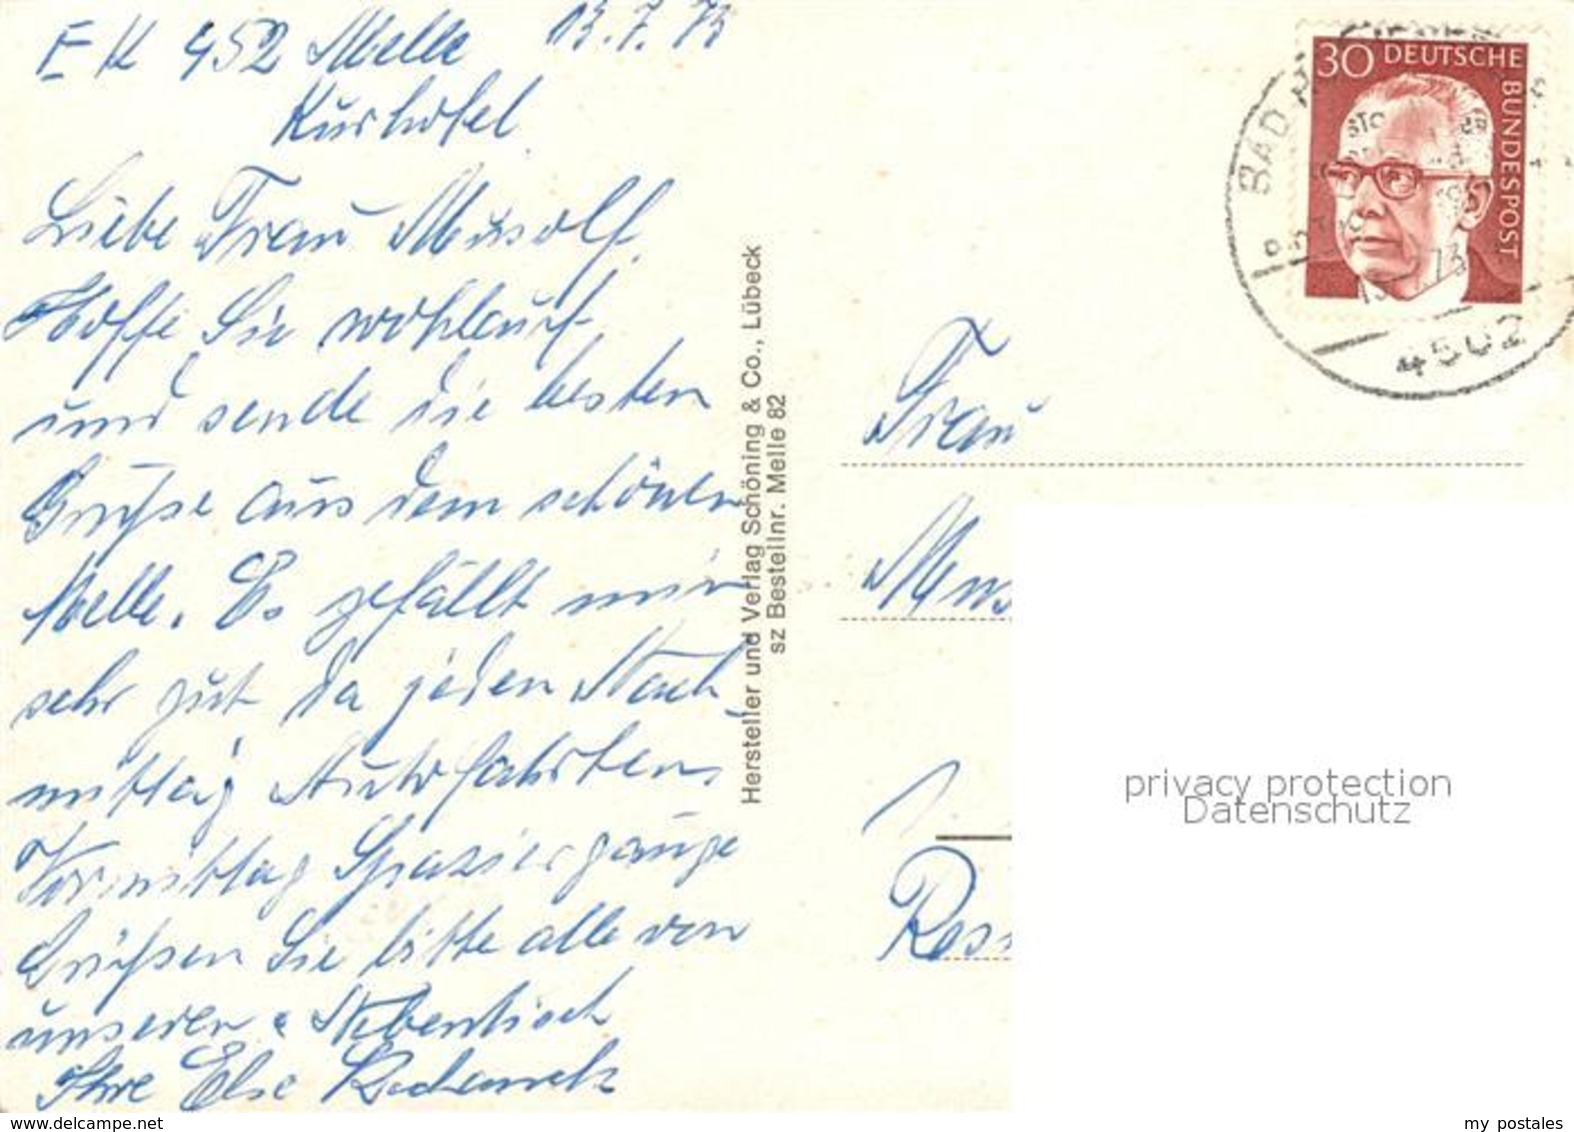 EK 452 Melle 13.7.73
Kurhotel
Liebe Frau Musolf,
Hoffe Sie wohlauf,
und sende die besten
Grüsse aus dem schönen
Melle. Es gefällt mir
sehr gut da jeden Nach-
mittag Autofahrten.
Vormittag Spaziergänge
Grüßen Sie bitte alle von
unseren Nebentisch
Ihre Else
Hersteller und Verlag Schöning & Co., Lübeck
sz Bestellnr. Melle 82
30 DEUTSCHE
BUNDESPOST
BAD
73
4502
Frau
privacy protection
Datenschutz
www.delcampe.net
my postales